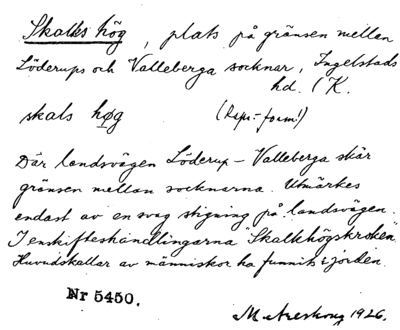 Skalks hög, plats på gränsen mellan
Löderups och Valleberga socknar, Ingelstads
hd. (K.
skals høg (Dipr.-form!)
Där landsvägen Löderup – Valleberga skär
gränsen mellan socknarna. Utmärkes
endast av en svag stigning på landsvägen.
I enskifteshandlingarna "Skalkhögskroken".
Huvudskallar av människor ha funnits i jorden.
Nr 5450.
M. Areskoug 1926.